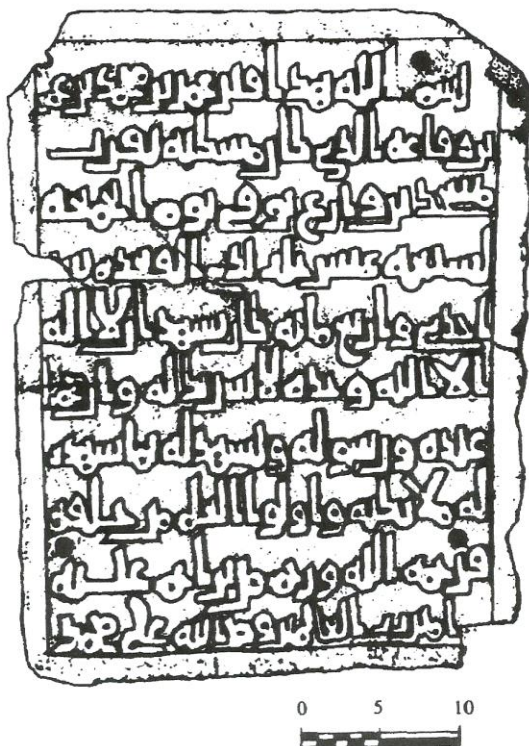 بسم الله هذا قبر عمر بن محمد بن عمر
بن رفاعة الذي كان مسكنه بقرب
مسجد بن توفي يوم الجمعة
لسبعة عشر ليلة القعدة سنة
احدى واربع مائة كان يشهد ان لا اله
الا الله وحده لا شريك له وان محمدا
عبده ورسوله ويشهد له بما شهد
له ملائكته واولوا العلم من خلقه
فرحمه الله ورحم من عليه
امين رب العالمين وصلى الله على محمد
0 5 10